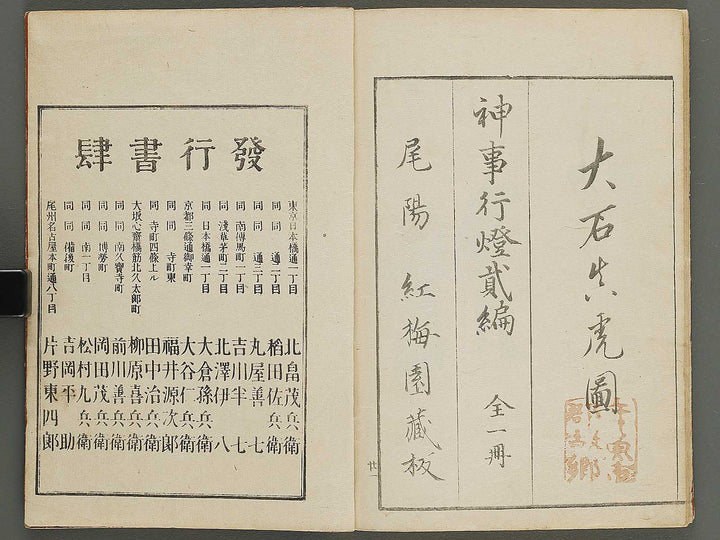 大石真虎圖
神事行燈貳編 全一冊
尾陽 紅梅園藏板
廿一
發行書肆
東京日本橋通一丁目 北畠茂兵衛
同 同 通二丁目 稻田佐兵衛
同 同 通三丁目 丸屋善七
同 南傳馬町一丁目 吉川半七
同 淺草茅町二丁目 北澤伊八
同 日本橋通一丁目 大倉孫兵衛
京都三條通御幸町 大谷仁兵衛
同 同 寺町東 福井源次郎
同 寺町四條上ル 田中治兵衛
大坂心齋橋筋北久太郎町 柳原喜兵衛
同 同 南久寶寺町 前川善兵衛
同 同 博勞町 岡田茂兵衛
同 同 南一丁目 松村九兵衛
同 同 備後町 吉岡平助
尾州名古屋本町通八丁目 片野東四郎